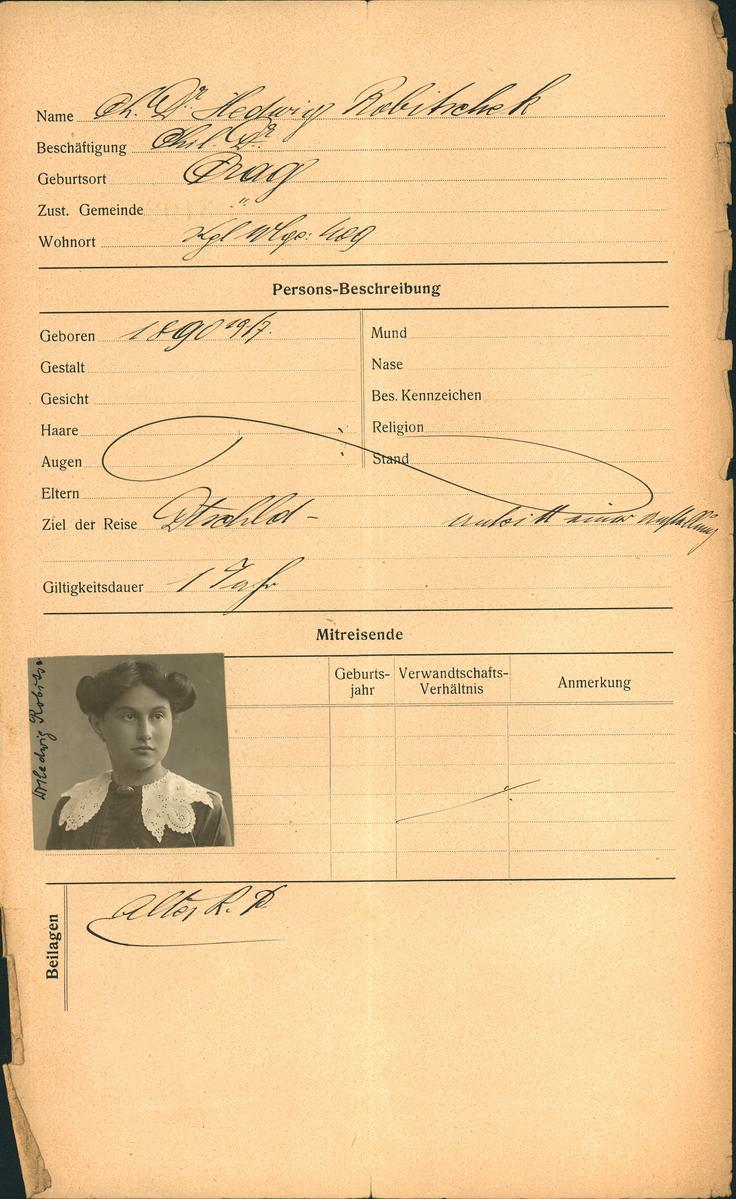 Name Ph. Dr. Hedwig Robitschek
Beschäftigung Phil. Dr.
Geburtsort Prag
Zust. Gemeinde "
Wohnort Kgl Wbge: 409
Persons-Beschreibung
Geboren 1890 19/7.
Gestalt
Gesicht
Haare
Augen
Eltern
Mund
Nase
Bes. Kennzeichen
Religion
Stand
Ziel der Reise Dtschld - Antritt einer Anstellung
Giltigkeitsdauer 1 Jahr
Mitreisende
Geburts-
jahr
Verwandtschafts-
Verhältnis
Anmerkung
Dr Hedwig Robits
Beilagen
Alter R. P.